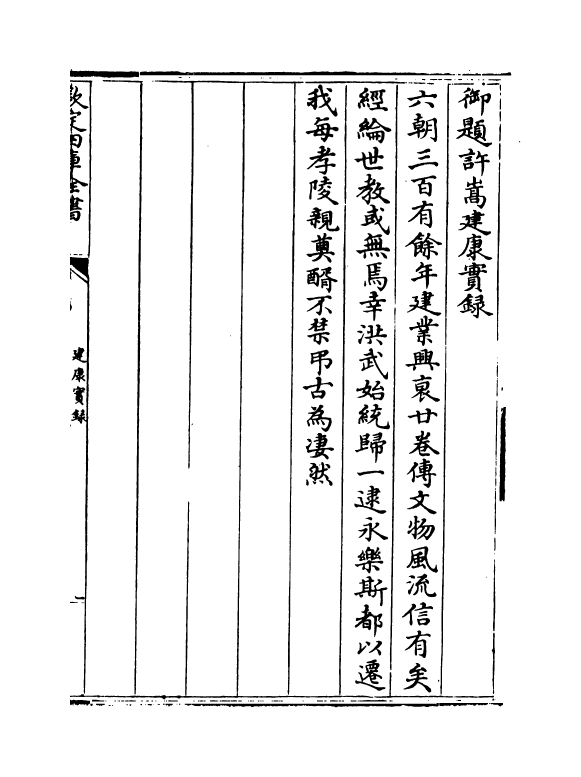 御題許嵩建康實録
六朝三百有餘年建業興衰廿卷傳文物風流信有矣
經綸世教或無焉幸洪武始統歸一逮永樂斯都以遷
我每孝陵親奠酹不禁弔古為凄然
欽定四庫全書
建康實録
一